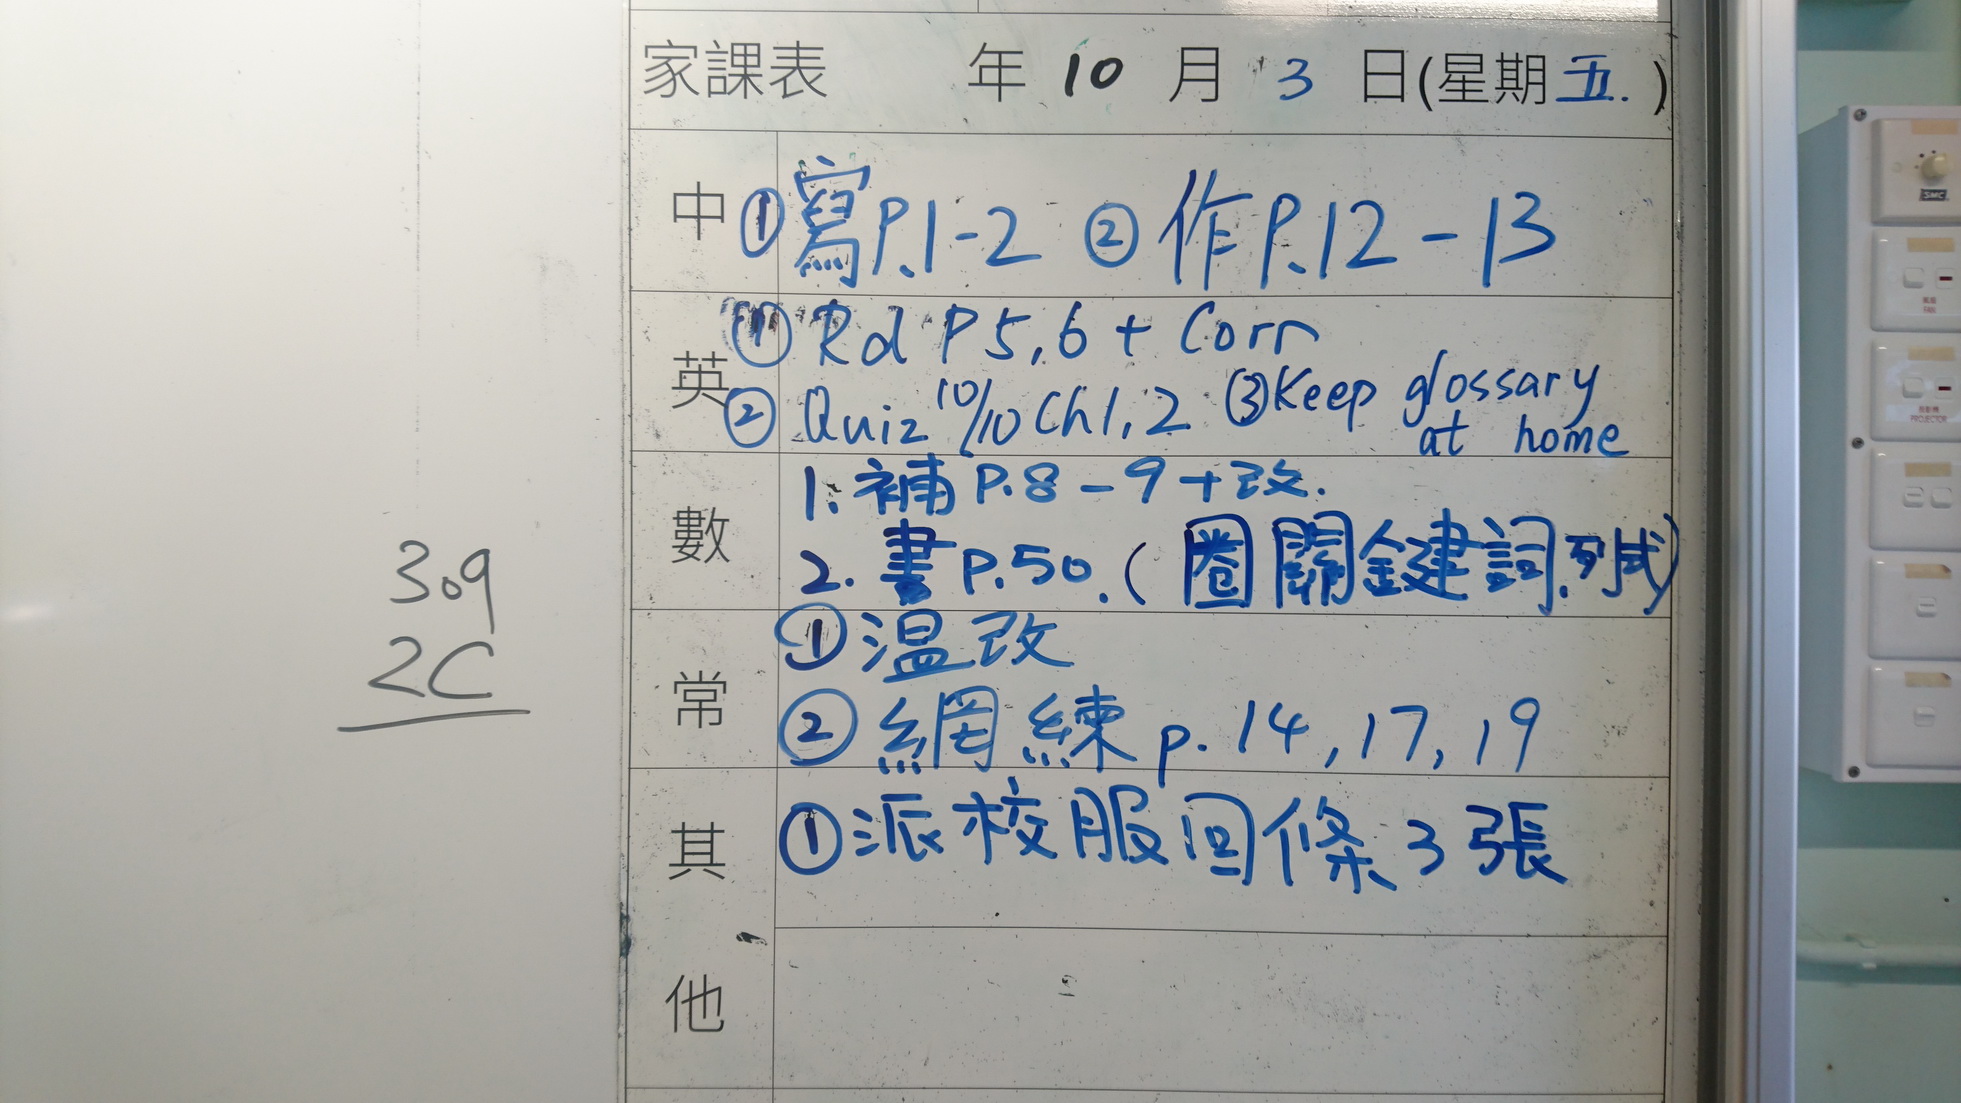 家課表 年 10 月 3 日(星期五.)
中 ① 寫P.1-2 ② 作P.12-13
英 ① Rd P5,6 + Corr
② Quiz 10/10 Ch1,2 ③ Keep glossary
at home
數 1. 補P.8-9+改.
2. 書P.50.(圈關鍵詞.列式)
常 ① 溫改
② 網練 p.14,17,19
其他 ① 派校服回條3張
309
2C
SMC
FAN
PROJECTOR